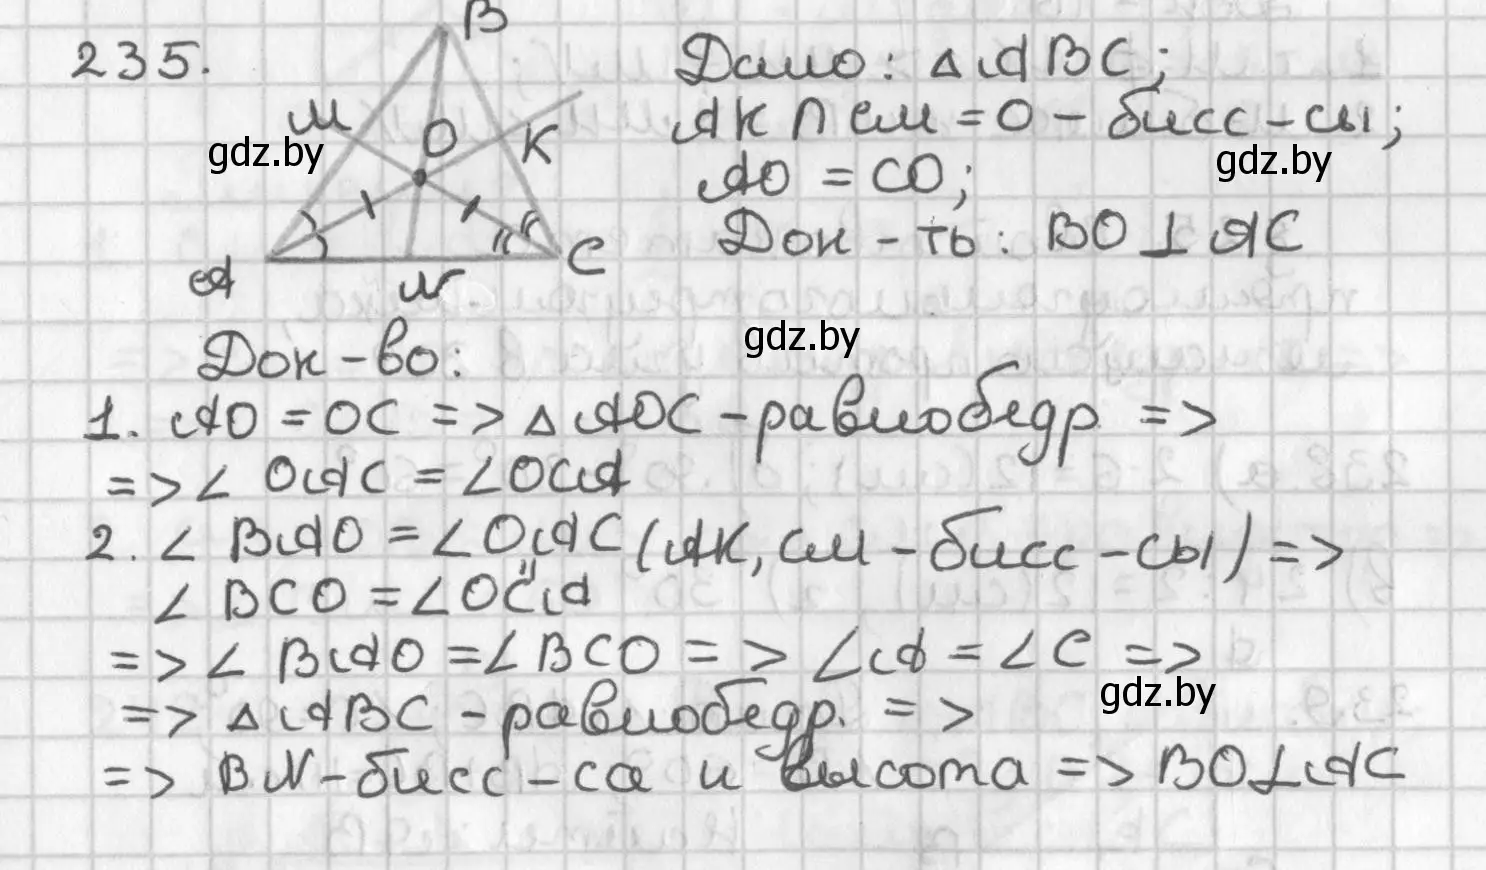 235.
B
M
O
K
A
N
C
Дано: △ABC;
AK ∩ CM = O - бисс-сы;
AO = CO;
Док-ть: BO⊥AC
Док-во:
1. AO = OC => △AOC - равнобедр. =>
=> ∠OAC = ∠OCA
2. ∠BAO = ∠OAC (AK, CM - бисс-сы) =>
∠BCO = ∠OCA
=> ∠BAO = ∠BCO => ∠A = ∠C =>
=> △ABC - равнобедр. =>
=> BN - бисс-са и высота => BO⊥AC
gdz.by
gdz.by
gdz.by
gdz.by